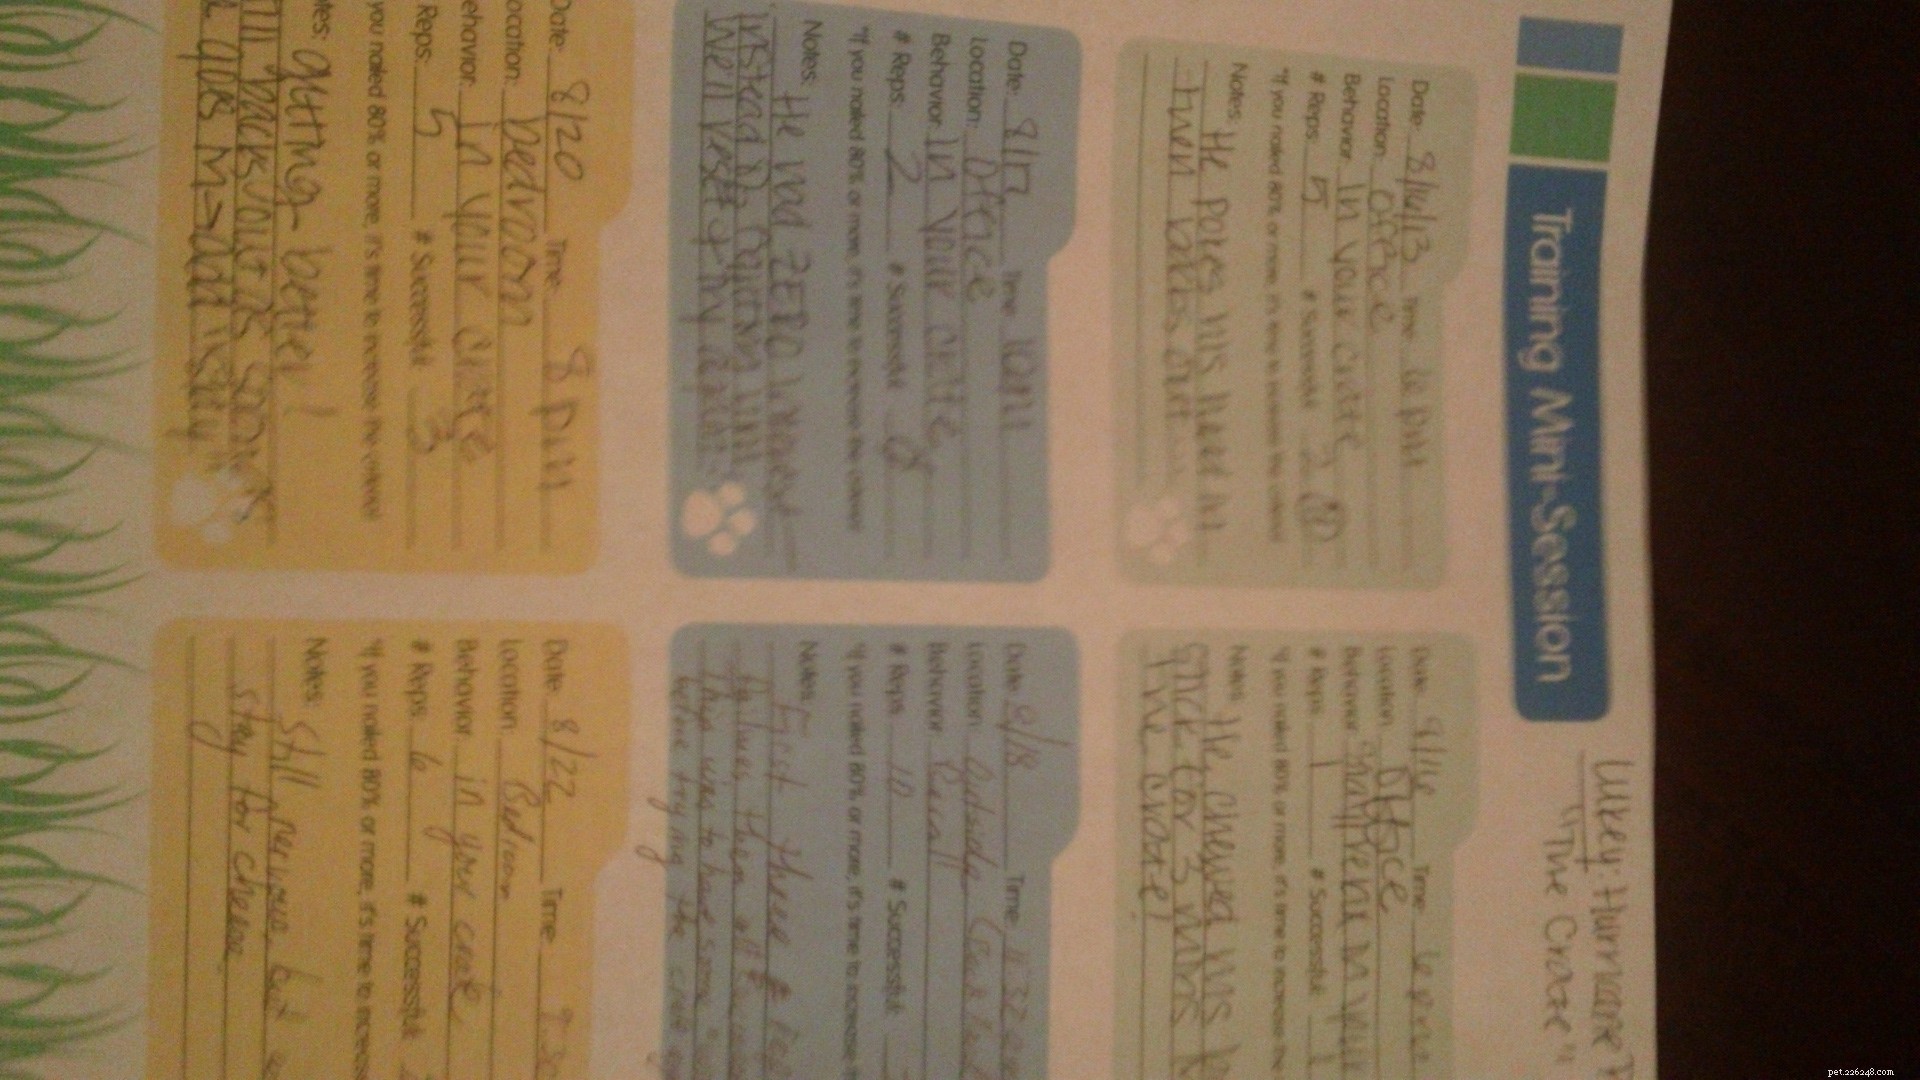 Training Mini-Session
"The Crate"
Date: 8/16/13 Time: 6 pm
Location: Office
Behavior: In your crate
# Reps: 5 # Successful:
*If you nailed 80% or more, it's time to increase the criteria!
Notes: He pokes his head in
then backs out...
Date: 8/16 Time: 6 pm
Location: Office
Behavior: in your
# Reps: 1 # Successful: 1
*If you nailed 80% or more, it's time to increase the
Notes: He chewed his
stick for 3 mins
the crate!
Date: 8/17 Time:
Location: Office
Behavior: In your crate
# Reps: 2 # Successful:
*If you nailed 80% or more, it's time to increase the criteria!
Notes: He had ZERO interest
Instead
We'll rest & try again.
Date: 8/18 Time: 11:32
Location: Outside
Behavior: Recall
# Reps: 10 # Successful:
*If you nailed 80% or more, it's time to increase
Notes: First three
then
to have some
before trying the crate
Date: 8/20 Time: 8 pm
Location: bedroom
Behavior: in your crate
# Reps: 5 # Successful: 3
you nailed 80% or more, it's time to increase the criteria!
Notes: getting better!
Still backs out as soon as
he goes in -> add "stay"
Date: 8/22 Time: 9:30
Location: Bedroom
Behavior: in your crate
# Reps: 6 # Successful:
*If you nailed 80% or more, it's time to increase
Notes: Still nervous, but
stay for cheese
pet.226248.com